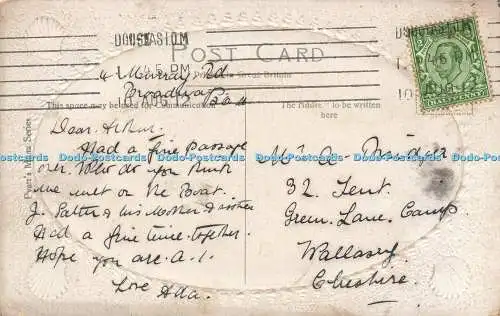 DOUGLAS I.O.M
POST CARD
Printed in Great Britain
This space may be used for Communication
The Address to be written
here
41 Murray Rd
Dear Arthur.
Had a fine passage
over. Who do you think
we met on the Boat.
J. Salter & his Mother & sister
Had a fine time together.
Hope you are A.1.
Love Ada.
Mr A.
32 Tent.
Green Lane Camp
Wallasey
Cheshire.
Dodo-Postcards Dodo-Postcards Dodo-Postcards Dodo-Postcards Dodo-Postcards